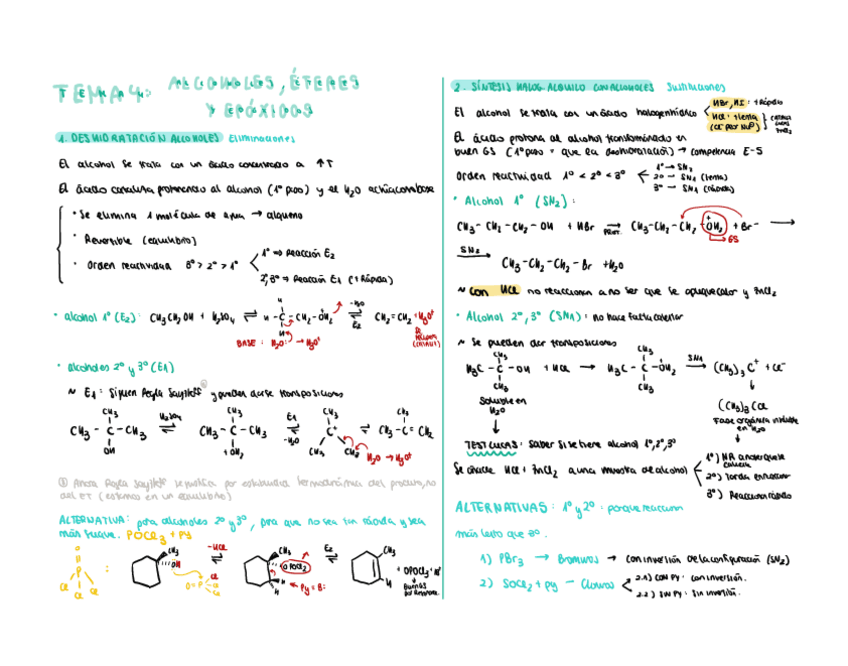 TEMA 4: ALCOHOLES, ÉTERES
Y EPÓXIDOS
1. DESHIDRATACIÓN ALCOHOLES Eliminaciones
El alcohol se trata con un ácido concentrado a ↑T
El ácido cataliza protonando al alcohol (1º paso) y el H2O actúa como base
• Se elimina 1 molécula de agua → alqueno
• Reversible (equilibrio)
• Orden reactividad 3º > 2º > 1º
1º ⇒ Reacción E2
2º, 3º ⇒ Reacción E1 (+ Rápida)
• alcohol 1º (E2): CH3CH2OH + H2SO4 ⇌ H-C-CH2-OH2 ⇌ CH2=CH2 + H3O+
-H2O
E2
BASE: H2O: → H3O+
• alcoholes 2º y 3º (E1)
~ E1: Siguen Regla Saytzeff y pueden darse transposiciones
CH3 CH3 CH3 CH3
CH3-C-CH3 ⇌ CH3-C-CH3 ⇌ C+ ⇌ CH3-C=CH2
H2SO4 E1 -H2O
OH +OH2 CH3 CH3 H2O → H3O+
① Ahora Regla Saytzeff se justifica por estabilidad termodinámica del producto, no
del ET (estamos en un equilibrio)
ALTERNATIVA: para alcoholes 2º y 3º, para que no sea tan rápida y sea
más suave. POCl3 + PY
O P Cl Cl Cl : CH3 OH -HCl ⇌ CH3 OPOCl2 E2 ⇌ CH3 H
O=P Cl Cl Cl
H H Py = B:
+ OPOCl2
2. SÍNTESIS HALOG. ALQUILO CON ALCOHOLES Sustituciones
El alcohol se trata con un ácido halogenhídrico
HBr, HI: + Rápido
HCl + lenta
(Cl- peor Nu)
El ácido protona al alcohol transformándolo en
buen GS (1º paso = que la deshidratación) → competencia E-S
Orden reactividad 1º < 2º < 3º
1º → SN2
2º → SN1 (lenta)
3º → SN1 (rápida)
• Alcohol 1º (SN2):
CH3-CH2-CH2-OH + HBr ⇌ CH3-CH2-CH2-OH2 + Br- →
GS
SN2 → CH3-CH2-CH2-Br + H2O
~ Con HCl no reacciona a no ser que se aplique calor y ZnCl2
• Alcohol 2º, 3º (SN1): no hace falta calentar
~ Se pueden dar transposiciones
CH3 CH3
H3C-C-OH + HCl → H3C-C-OH2 SN1 → (CH3)3C+ + Cl-
CH3 CH3
Soluble en
H2O
(CH3)3CCl
Fase orgánica insoluble
en H2O
TEST LUCAS: Saber si se tiene alcohol 1º, 2º, 3º
Se añade HCl + ZnCl2 a una muestra de alcohol
1º) NR a no ser que se
caliente
2º) Tarda en reaccionar
3º) Reacciona rápido
ALTERNATIVAS: 1º y 2º: porque reaccionan
más lento que 3º.
1) PBr3 → Bromuros → con inversión de la configuración (SN2)
2) SOCl2 + py - Cloruros
2.1) CON PY: con inversión.
2.2) SIN PY: sin inversión.